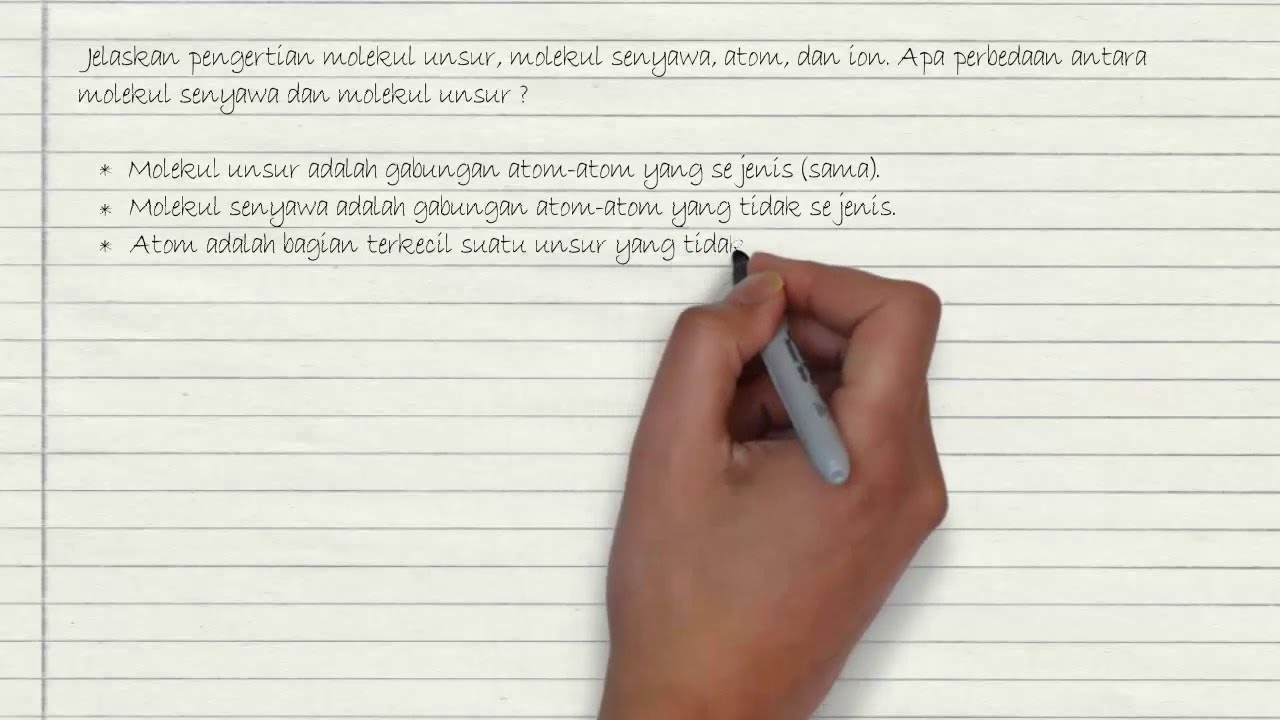 Jelaskan pengertian molekul unsur, molekul senyawa, atom, dan ion. Apa perbedaan antara
molekul senyawa dan molekul unsur ?
* Molekul unsur adalah gabungan atom-atom yang se jenis (sama).
* Molekul senyawa adalah gabungan atom-atom yang tidak se jenis.
* Atom adalah bagian terkecil suatu unsur yang tidak